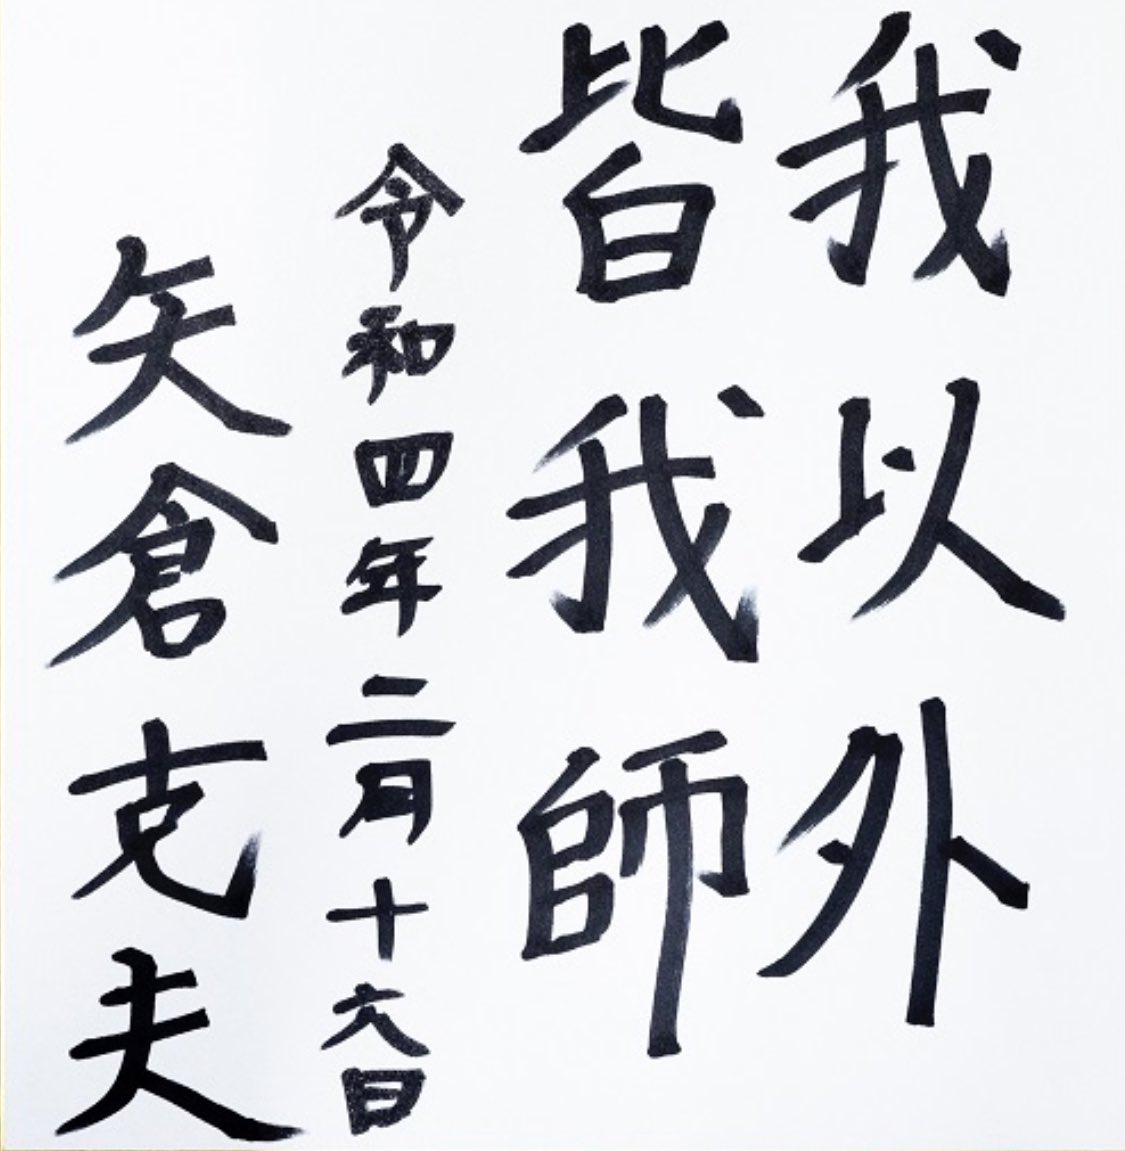 我以外
皆我師
令和四年二月十六日
矢倉克夫